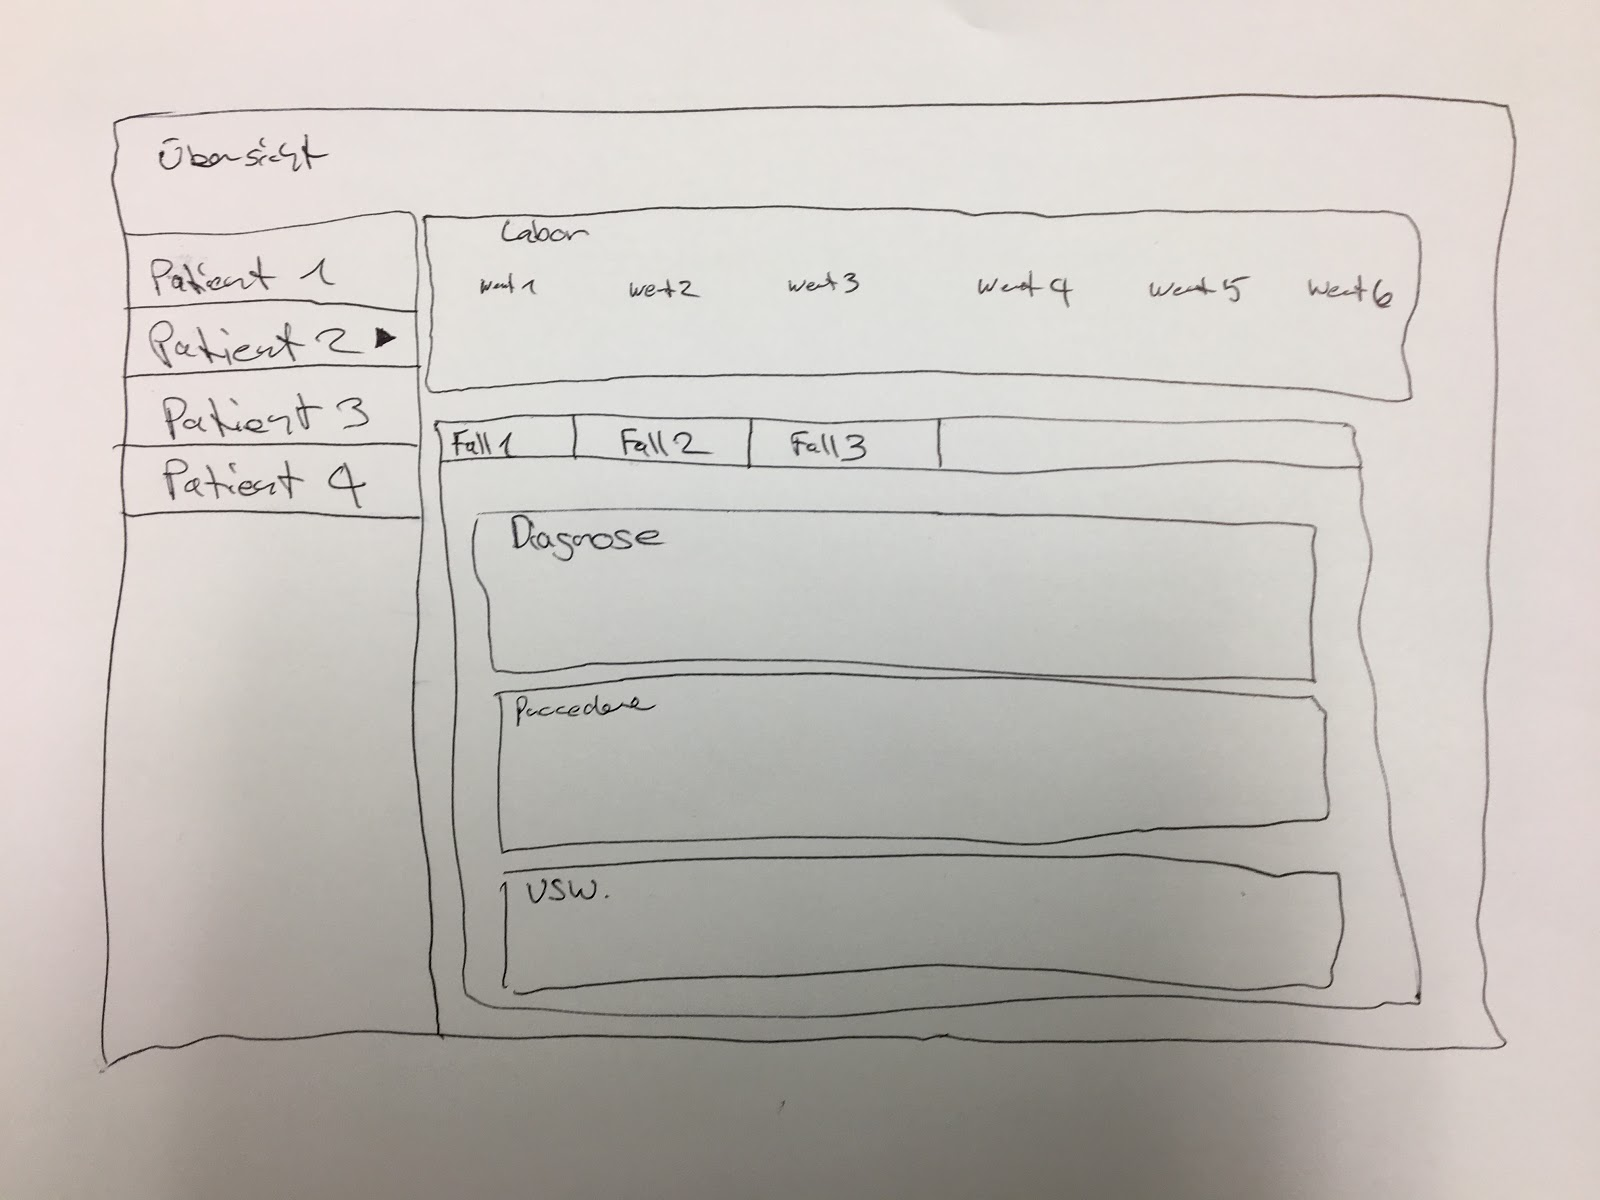 Übersicht
Patient 1
Patient 2
Patient 3
Patient 4
Labor
Wert 1 Wert 2 Wert 3 Wert 4 Wert 5 Wert 6
Fall 1 Fall 2 Fall 3
Diagnose
Proccedere
USW.